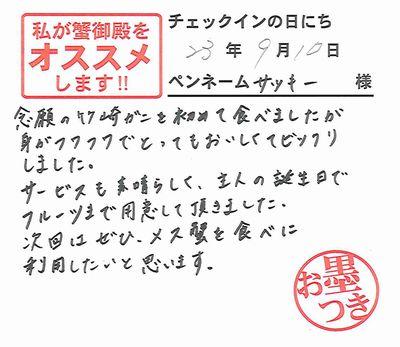 私が蟹御殿を
オススメ
します!!
チェックインの日にち
23年9月10日
ペンネームサッキー様
念願の竹崎ガニを初めて食べましたが
身がフワフワでとってもおいしくてビックリ
しました。
サービスも素晴らしく、主人の誕生日で
フルーツまで用意して頂きました。
次回はぜひ、メス蟹を食べに
利用したいと思います。
お墨
つき